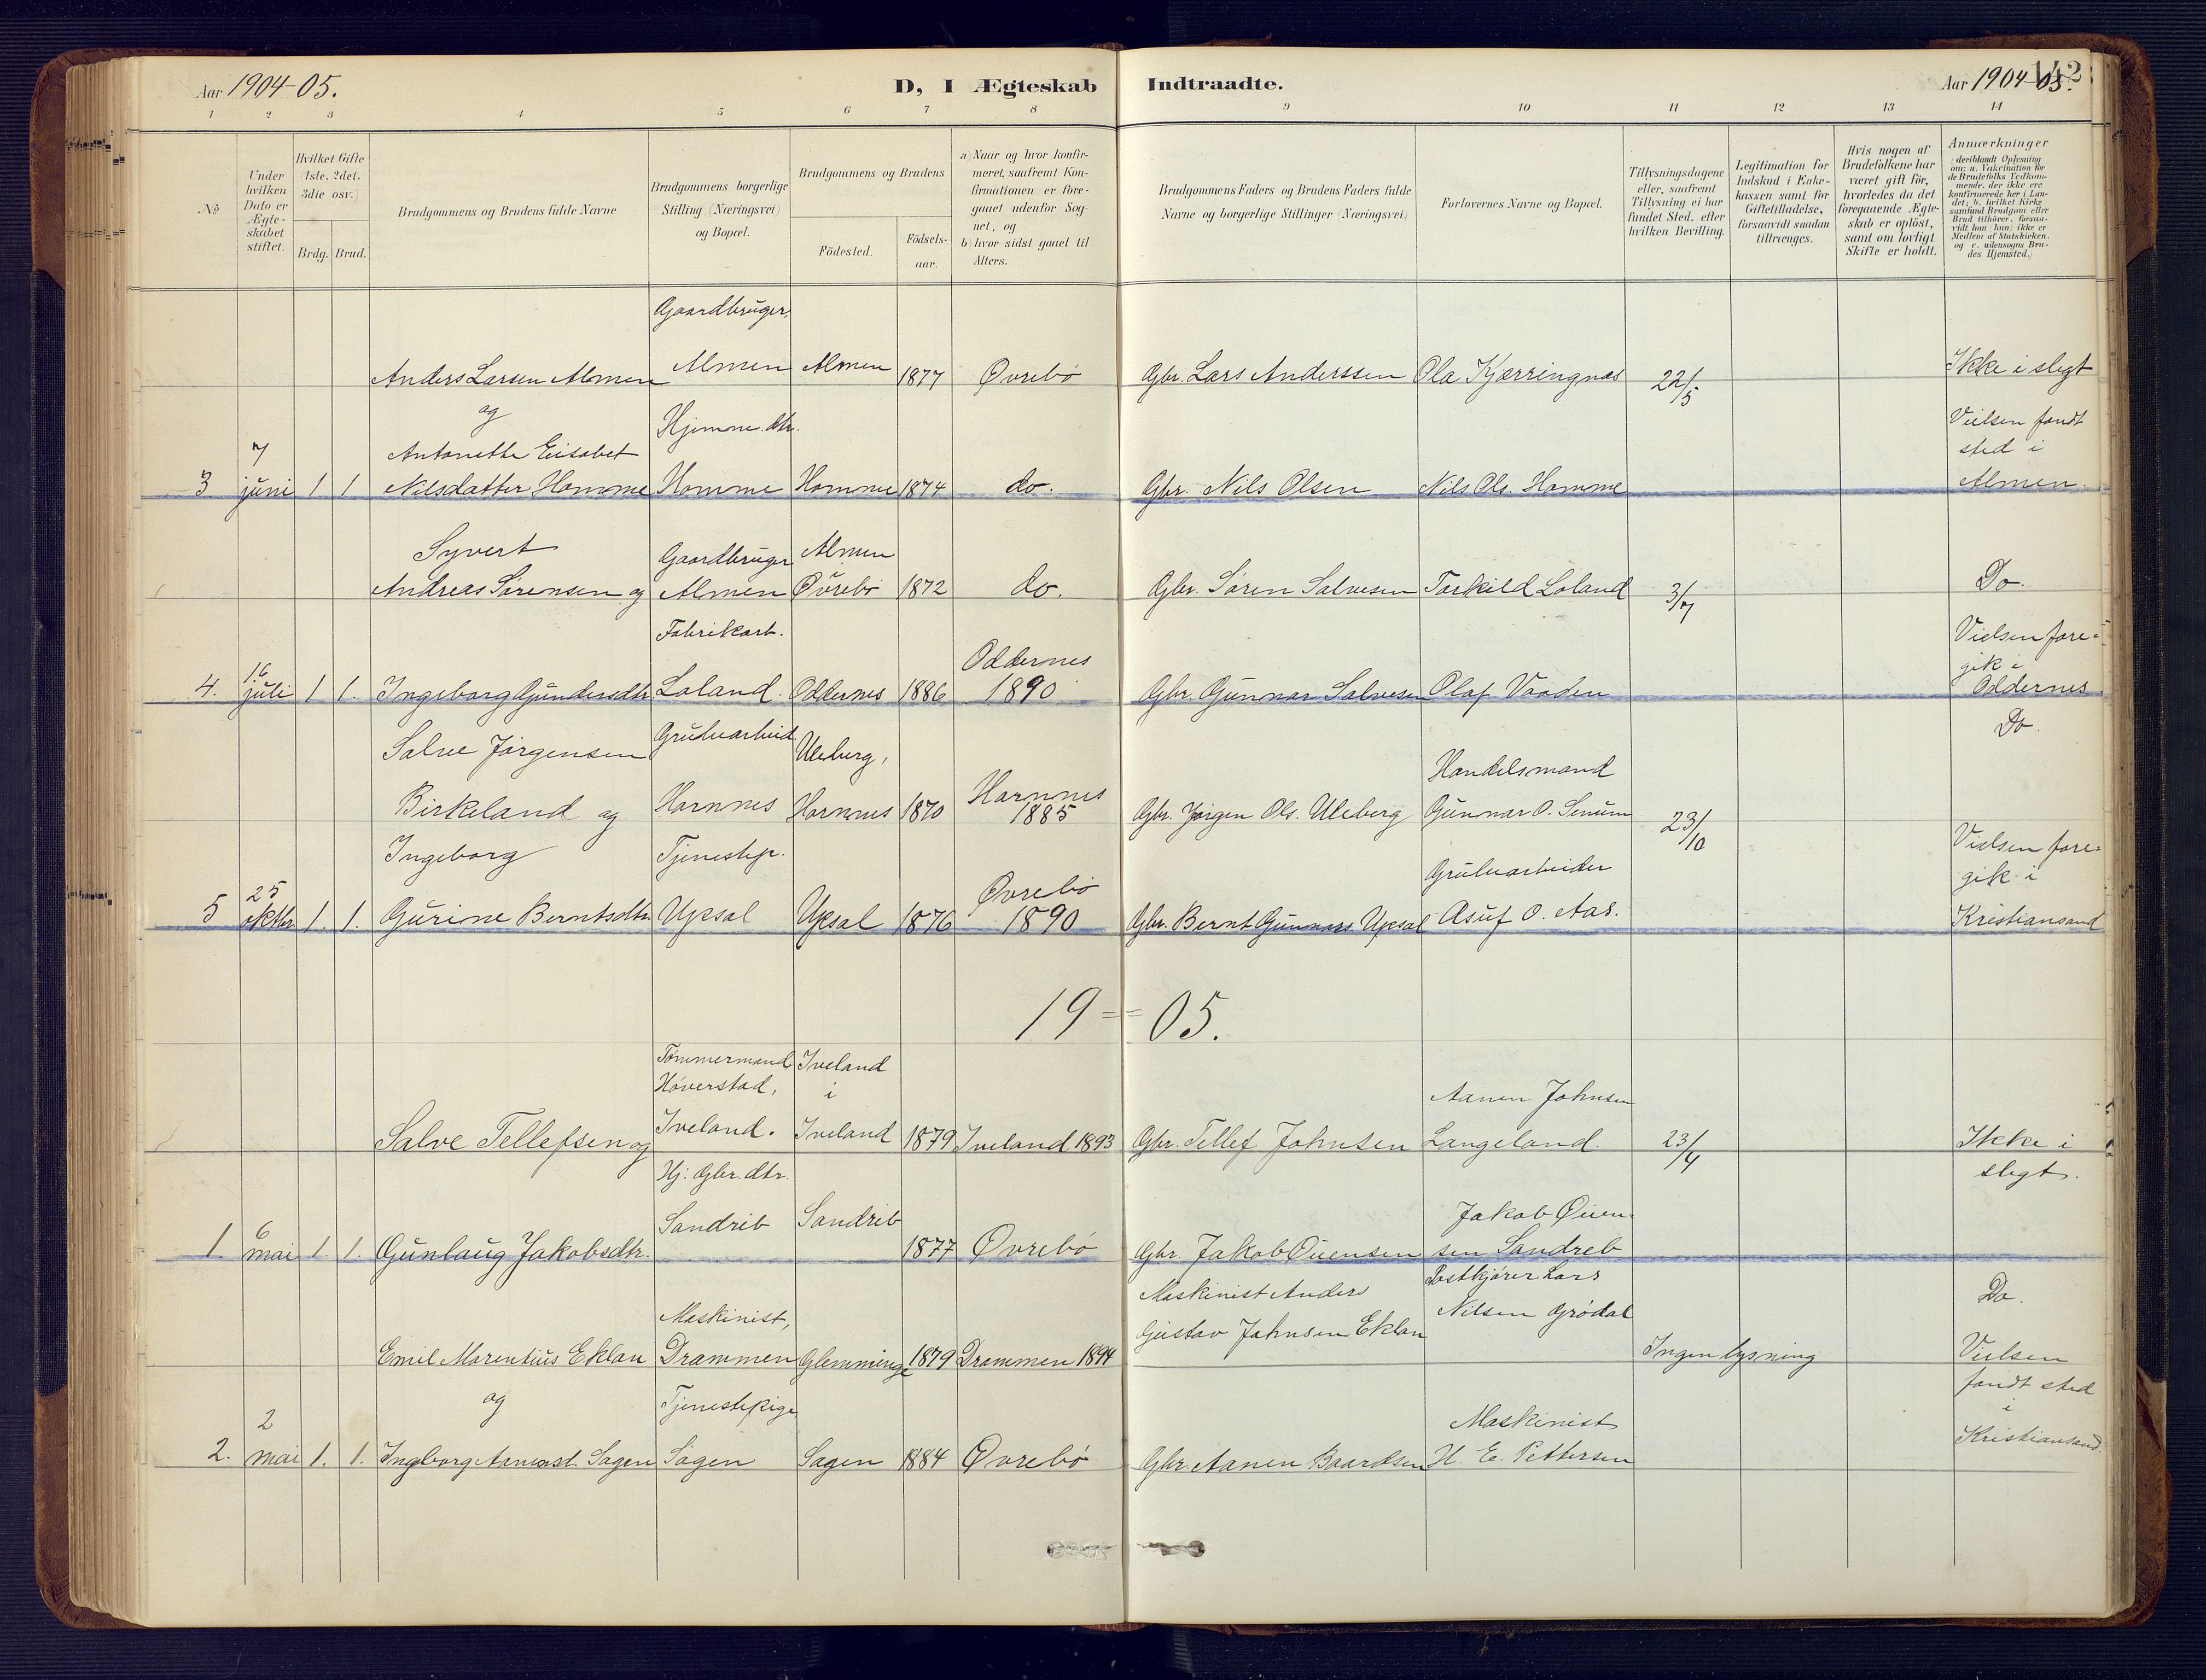 Aar 1904-05.
D, I Ægteskab Indtraadte.
Aar 1904-05.
142
1 2 3 4 5 6 7 8 9 10 11 12 13 14
No
Under hvilken Dato er Ægteskabet stiftet.
Hvilket Gifte (1ste, 2det, 3die osv.)
Brdg. Brud.
Brudgommens og Brudens fulde Navne
Brudgommens borgerlige Stilling (Næringsvei) og Bopæl.
Brudgommens og Brudens
Födested.
Födselsaar.
a) Naar og hvor konfirmeret, saafremt Konfirmationen er foregaaet udenfor Sognet, og
b) hvor sidst gaaet til Alters.
Brudgommens Faders og Brudens Faders fulde Navne og borgerlige Stillinger (Næringsvei)
Forlovernes Navne og Bopæl.
Tillysningsdagene eller, saafremt Tillysning ei har fundet Sted, efter hvilken Bevilling.
Legitimation for Indskud i Enkekassen samt for Giftetilladelse, forsaavidt saadan tiltrænges.
Hvis nogen af Brudefolkene har været gift för, hvorledes da det foregaaende Ægteskab er oplöst, samt om lovligt Skifte er holdt.
Anmærkninger
(deriblandt Oplysning om: a. Vakcination for de Brudefolks Vedkommende, der ikke ere konfirmerede her i Landet; b. hvilket Kirkesamfund Brudgom eller Brud tilhörer, forsaavidt han (hun) ikke er Medlem af Statskirken, og c. udensogns Brudes Hjemsted.)
Gaardbruger,
Anders Larsen Almen Almen Almen 1877 Øvrebö Gbr. Lars Anderssen Ola Kjærringnas 22/5 Ikke i slegt
og Hjemme. dtr. Vielsen fandt
7 Antonette Elisabet sted i
3 juni 1 1 Nilsdatter Homme Homme Homme 1874 do. Gbr. Nils Olsen Nils Ols. Homme Almen.
Syvert Gaardbruger Almen
Andreas Sørensen og Almen Øvrebö 1872 do. Gbr. Søren Salvesen Torkild Loland 3/7 Do.
Fabrikarb. Vielsen fore-
16 Oddernes gik i
4. juli 1 1. Ingeborg Gundersdtr. Loland. Oddernes 1886 1890 Gbr. Gunnar Salvesen Olaf Vaaden Oddernes
Salve Jørgensen Grubearbeid Uleberg, Do.
Handelsmand
Birkeland og Hornnes Hornnes 1870 Hornnes 1885 Gbr. Jørgen Ols. Uleberg Gunnar O. Senum 23/10
Ingeborg Tjenestep. Vielsen fore-
25 Øvrebö Grubearbeider gik i
5 oktbr. 1. 1. Gurine Berntsdtr. Upsal Upsal 1876 1890 Gbr. Bernt Gunnars. Upsal Asuf O. Aas. Kristiansand
19 = 05.
Tömmermand Iveland
Höverstad, i Aanen Johnsen
Salve Tellefsen og Iveland. Iveland 1879 Iveland 1893 Gbr. Tellef Johnsen Langeland. 23/4 Ikke i
Hj: Gbr. dtr. slegt.
6 Sandrib Sandrib Jakob Øuen-
1. mai 1. 1. Gunlaug Jakobsdtr. 1877 Øvrebö Gbr. Jakob Øuensen sen Sandreb
Maskinist Anders Postkjörer Lars Do.
Maskinist, Gustav Johnsen Eklan Nilsen Grödal
Emil Morentius Eklan Drammen Glemminge 1879 Drammen 1894 Ingen lysning Vielsen
og Tjenestepige fandt sted
2 Maskinist i
2. mai 1. 1. Ingborg Aanensd. Sagen Sagen Sagen 1884 Øvrebö Gbr. Aanen Baardsen H. E. Pettersen Kristiansand.